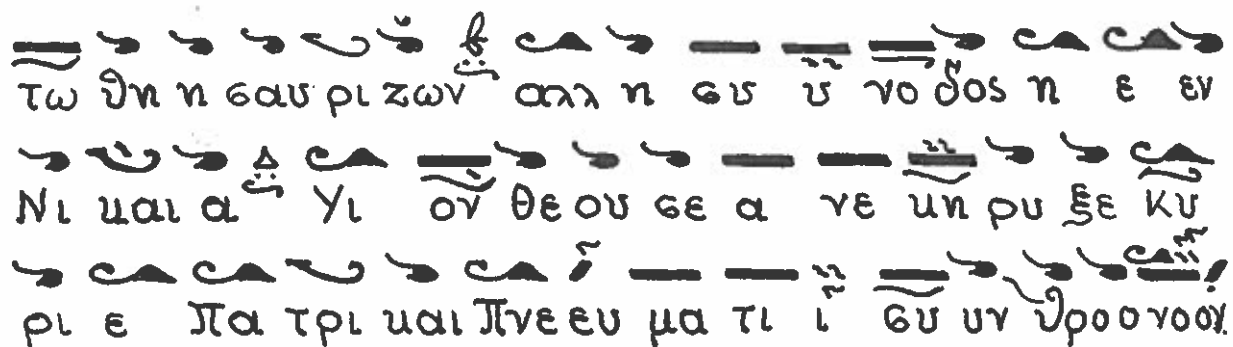 τω θη η σαυ ρι ζων αλλ η συ υ νο δος η ε εν
Νι και α Υι ον θε ου σε α νε κη ρυ ξε κυ
ρι ε πα τρι και πνε ευ μα τι ι συ υν θρο ο νο ον.